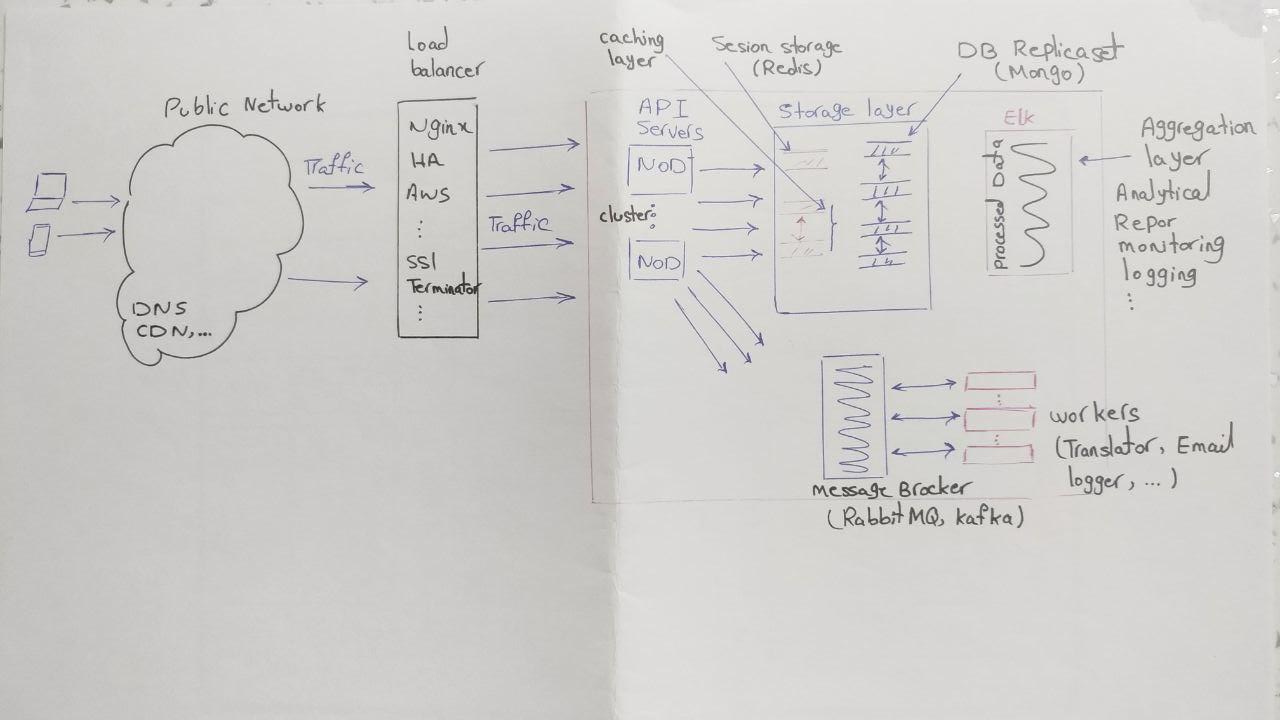 Public Network
DNS
CDN,...
Traffic
Load
balancer
Nginx
HA
AWS
SSl
Terminator
Traffic
caching
layer
Sesion storage
(Redis)
DB Replicaset
(Mongo)
API
Servers
NoD
cluster:
NoD
Storage layer
Elk
processed Data
Aggregation
layer
Analytical
Repor
monitoring
logging
Message Brocker
(Rabbit MQ, kafka)
workers
(Translator, Email
logger, ...)